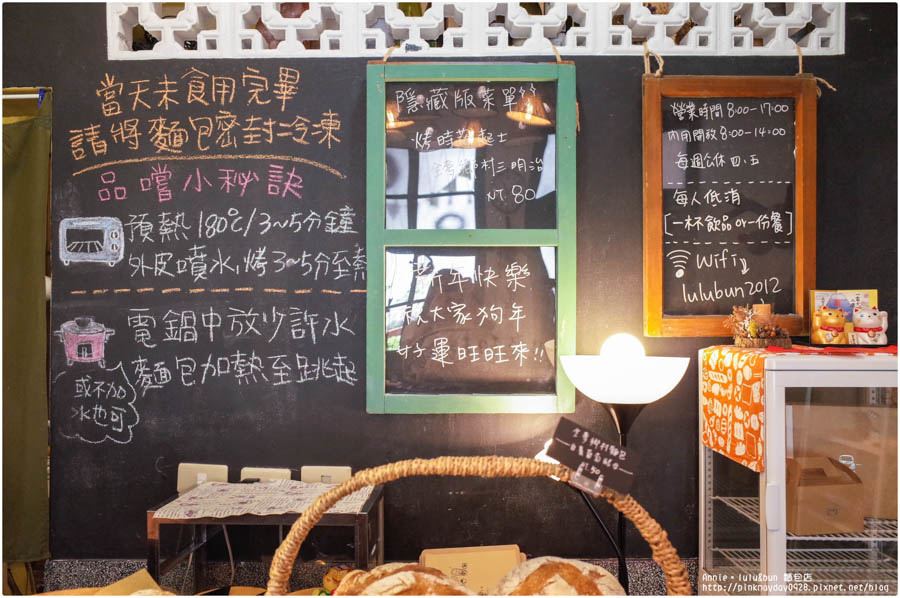 當天未食用完畢
請將麵包密封冷凍
品嚐小秘訣
預熱 180℃/3~5分鐘
外皮噴水,烤3~5分至熱
電鍋中放少許水
麵包加熱至跳起
或不加
水也可
隱藏版菜單
烤時蔬起士
三明治
NT 80
新年快樂
祝大家狗年
好運旺旺來!!
營業時間 8:00-17:00
內用開放 8:00-14:00
每週公休 四、五
每人低消
[一杯飲品 or 一份餐]
Wifi
lulubun2012
Annie·lulu&bun 麵包店
http://pinknayday0928.pixnet.net/blog